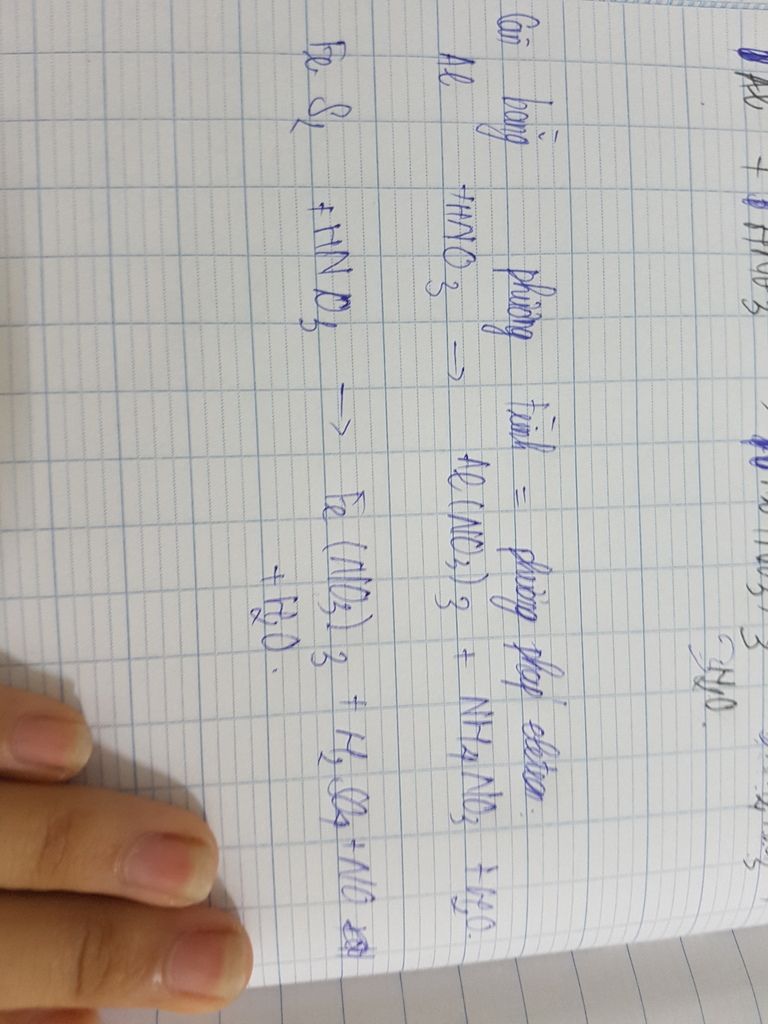 Al + HNO3
+ H2O.
Cân bằng phương trình = phương pháp eletron.
Al + HNO3 → Al(NO3)3 + NH4NO3 + H2O.
FeS2 + HNO3 → Fe(NO3)3 + H2SO4 + NO
+ H2O.